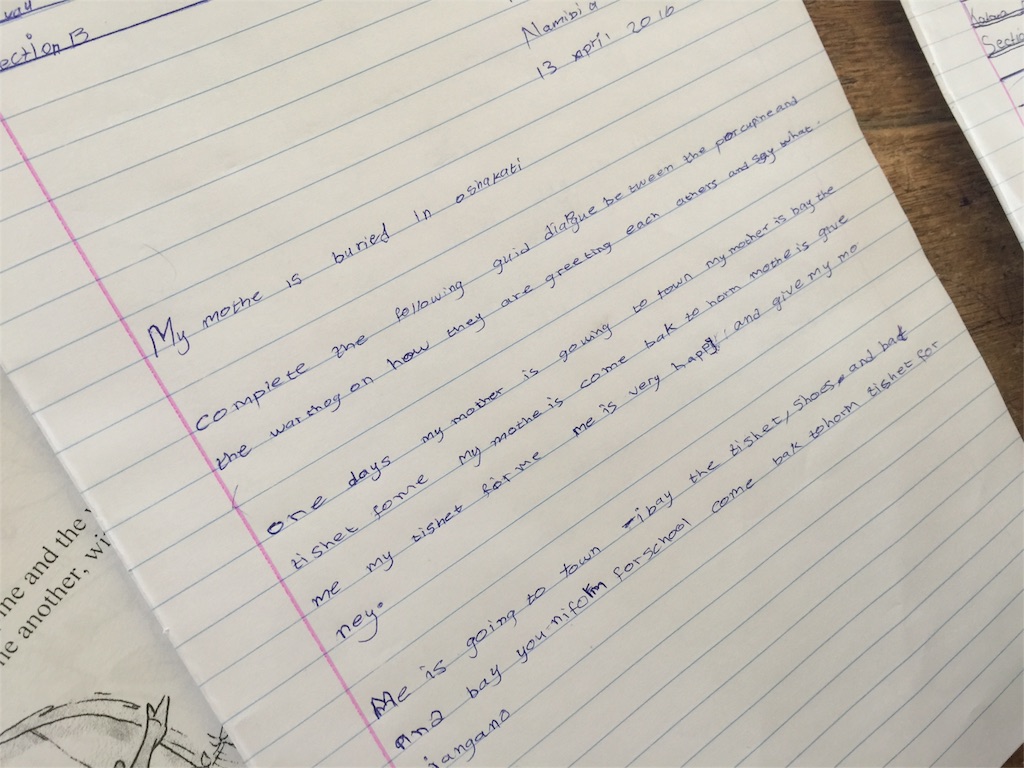 ection B
Namibia
13 April 2016
My mothe is buried in oshakati
complete the following guid dialgue between the porcupine and
the warthog on how they are greeting each athers and say what.
one days my mother is goving to town my mother is bay the
tishet forme my mothe is come bak to horm mothe is give
me my tishet for me me is very happy! and give my mo
ney.
Me is going to town -ibay the tishet, shoes, and bat
and bay you niform forschool come bak tohorm tishet for
iangano
Sectio
ine and the
ne another, wi